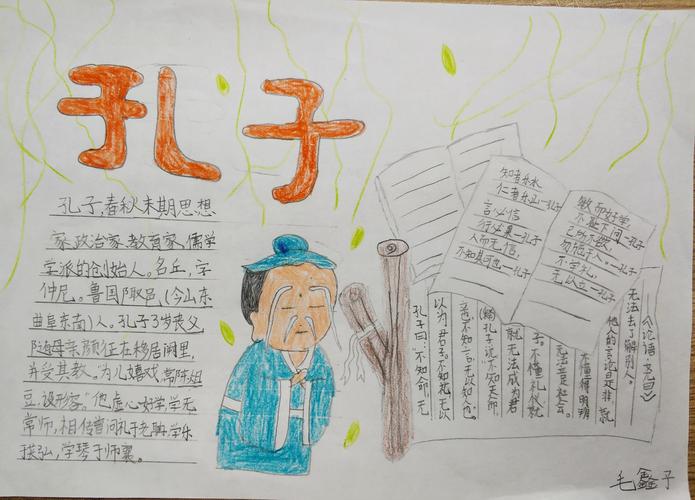 孔子
孔子,春秋末期思想
家、政治家、教育家、儒学
学派的创始人。名丘,字
仲尼。鲁国陬邑,(今山东
曲阜东南)人。孔子3岁丧父
随母亲颜征在移居阙里,
并受其教。为儿嬉戏,常陈俎
豆,设形容。他虚心好学,学无
常师,相传曾问孔子老聃,学乐
苌弘,学琴于师襄。
知者乐水
仁者乐山—孔子
言必信
行必果—孔子
人而无信,
不知其可也—孔子
敏而好学
不耻下问—孔子
己所不欲,
勿施于人。—孔子
不学礼,
无以立—孔子
《论语·尧曰》
无法去了解别人。
他人的言论是非,就
不懂得明辨
立足社会。
去。不懂礼仪就
就无法成为君
(编孔子说不知天命,
意,不知言,无以知人也。
以为君子。不知礼,无以
孔子曰:“不知命,无
毛鑫子